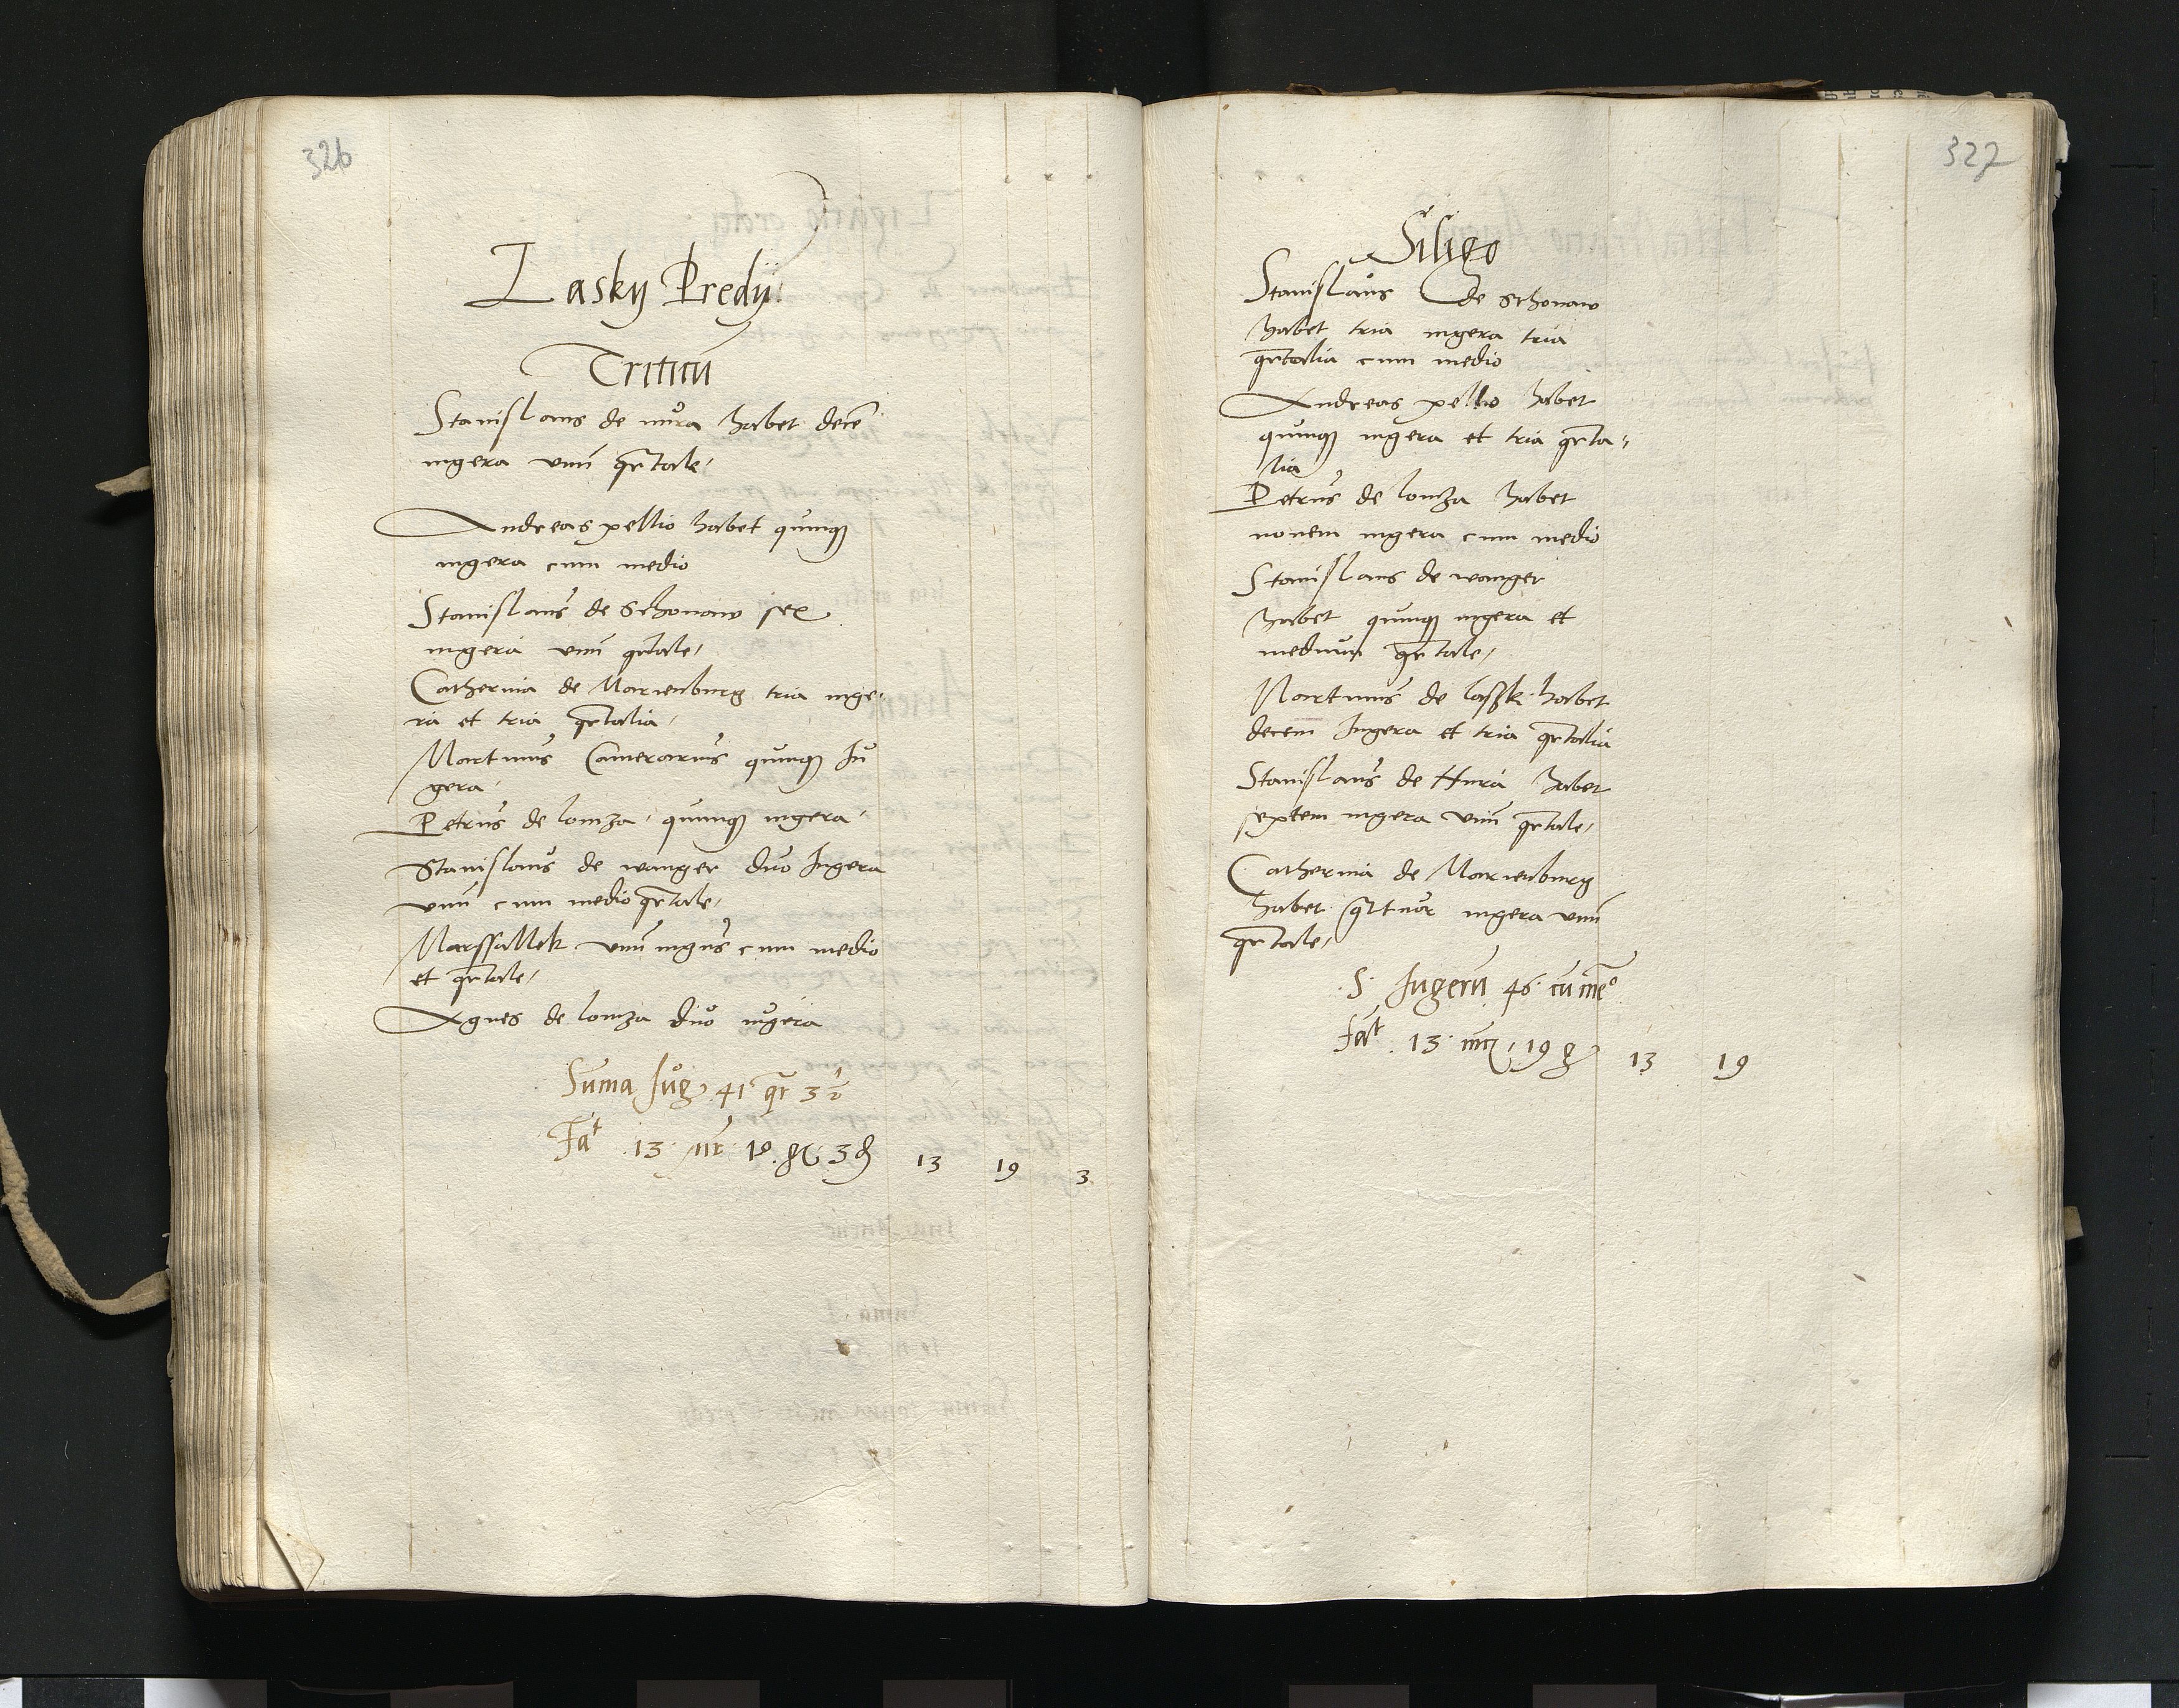 326
Lasky Predij
Triticu
Stanislaus de mura habet dece
iugera unu qrtale
Andreas pellio habet quinq
iugera cum medio
Stanislaus de Schonaw sex
iugera unu qrtale
Catherina de Marienburg tria iuge-
ra et tria qrtalia
Martinus Camerarius quinq Iu
gera
Petrus de lomza quinq iugera
Stanislaus de wanger duo Iugera
unu cum medio qrtale
Marssallek unu iugus cum medio
et qrtale
Agnes de lomza duo iugera
Suma Iug 41 qr 3 ½
Fat 13 mr 19 gr 3 d 13 19 3
327
Siligo
Stanislaus de Schonaw
habet tria iugera tria
qrtalia cum medio
Andreas pellio habet
quinq iugera et tria qrta-
lia
Petrus de lomza habet
novem iugera cum medio
Stanislaus de wanger
habet quinq iugera et
medium qrtale
Martinus de lassk habet
decem Iugera et tria qrtalia
Stanislaus de Mura habet
septem iugera unu qrtale
Catherina de Marienburg
habet qutuor iugera unu
qrtale
S. Iugeru 46 cu meo
fat 13 mrc 19 g 13 19